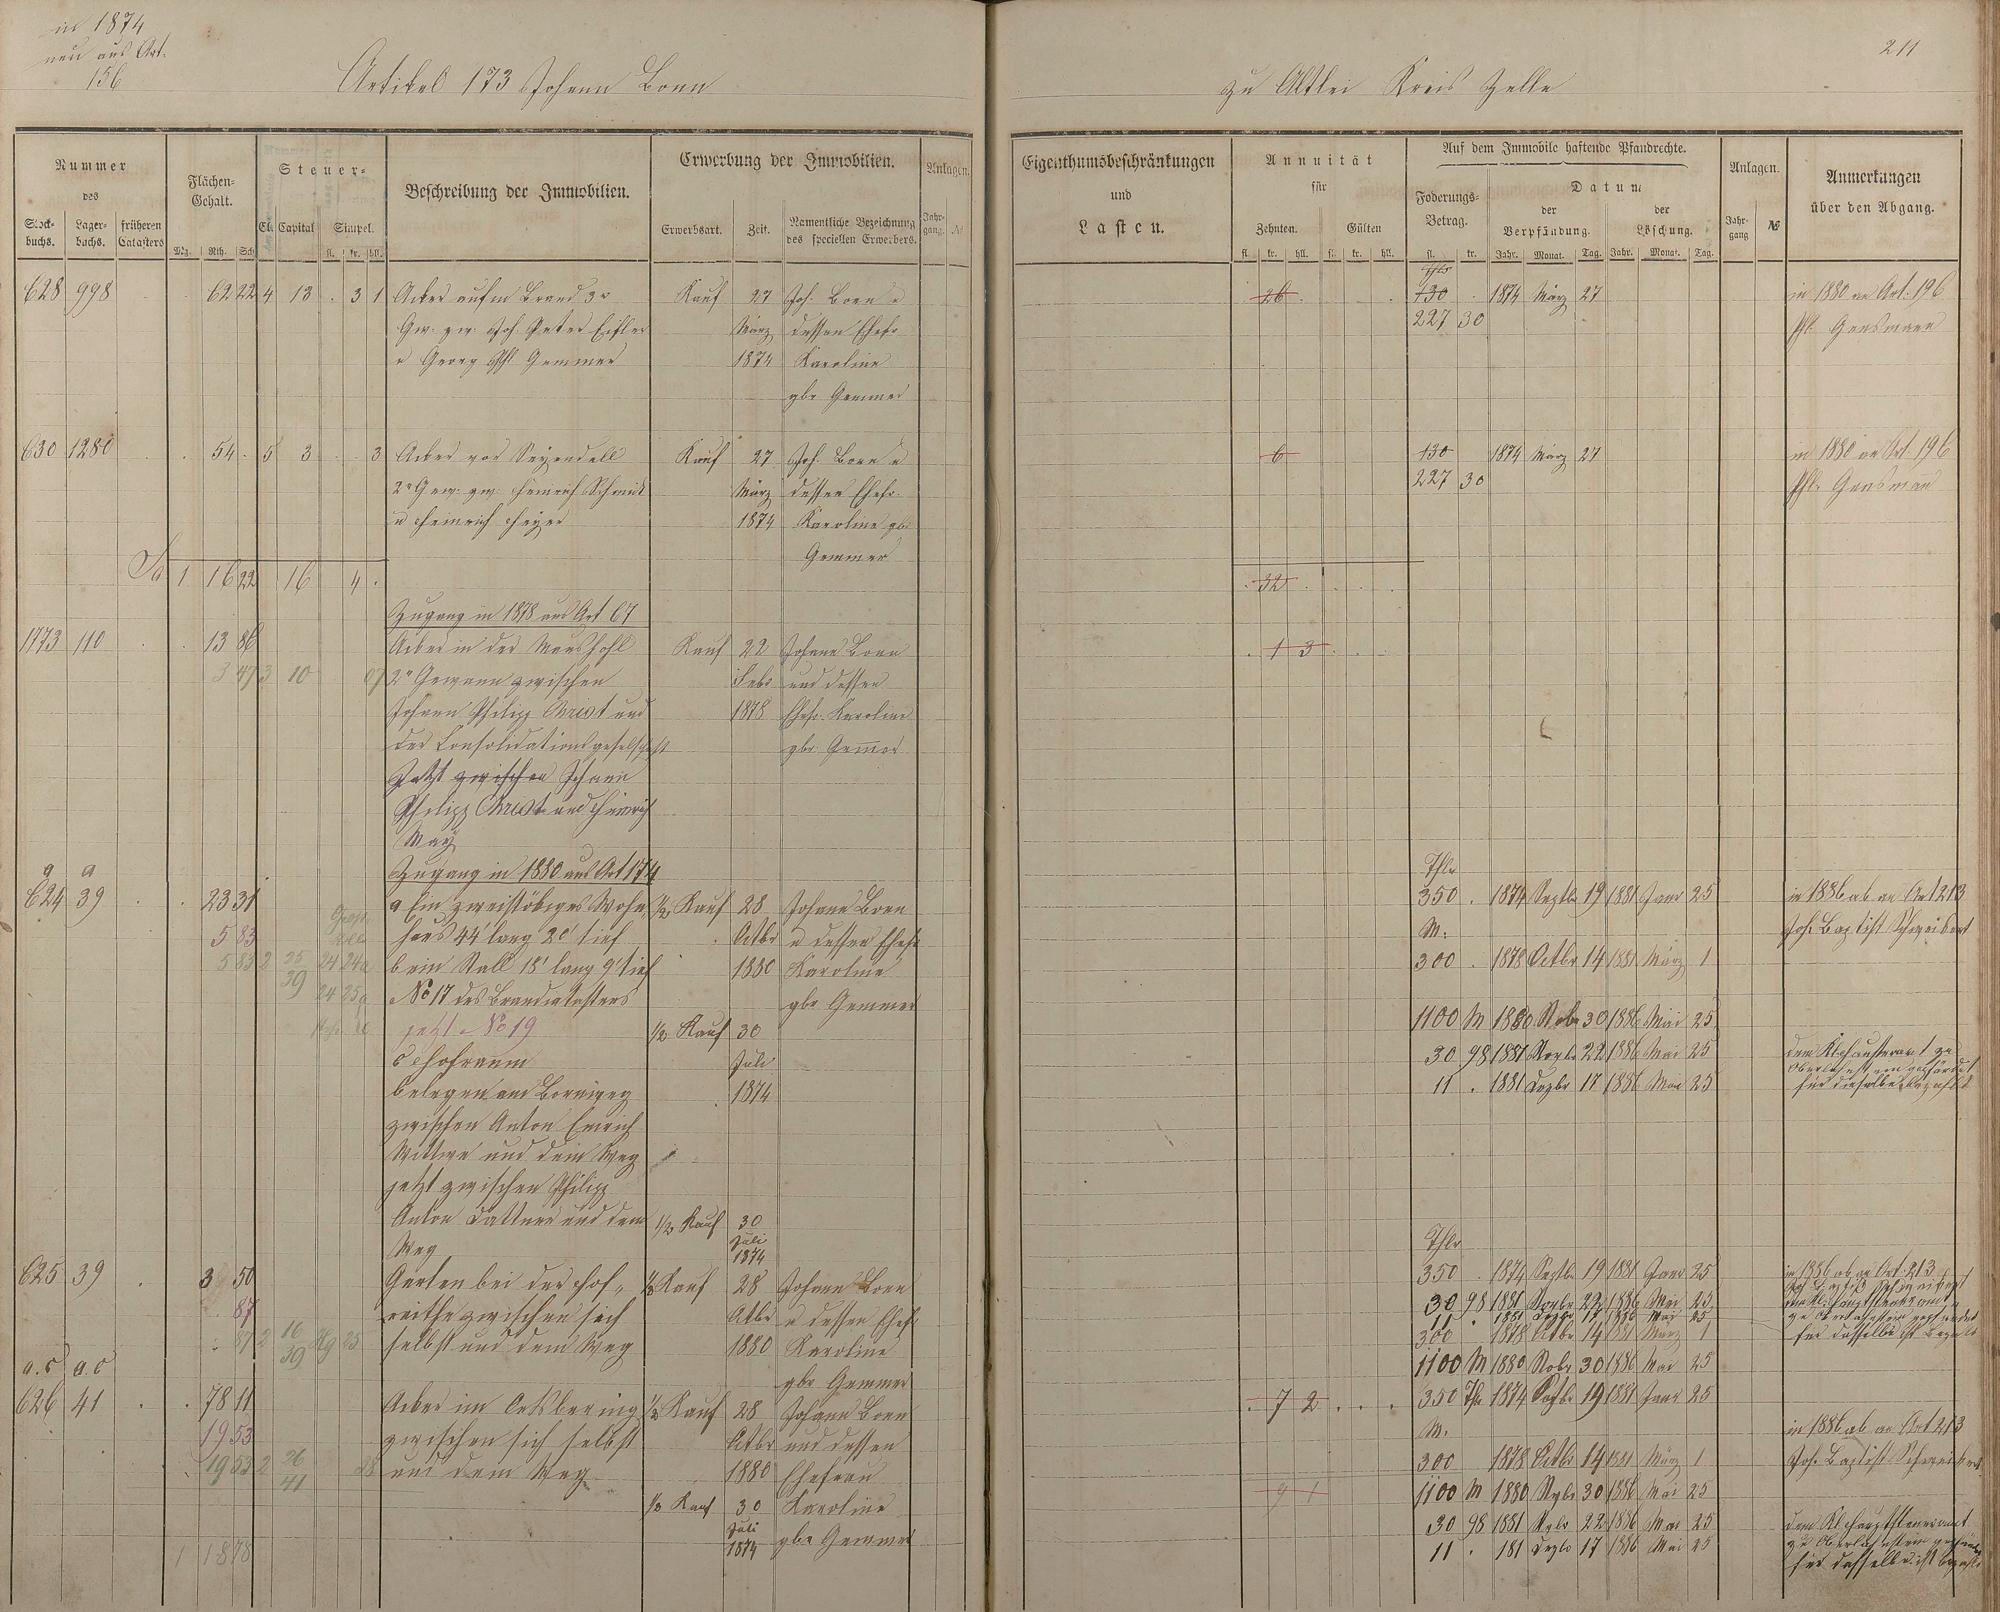 in 1874
neu aus Art.
156
Artikel 173 Johann Born
zu Altlei Kreis Zelle
211
Nummer
des
Stock-
buchs.
Lager-
buchs.
früheren
Catasters
Flächen-
Gehalt.
Mg. Rth. Sch.
Steuer-
Cl. Capital Simpel.
fl. kr. hll.
Beschreibung der Immobilien.
Erwerbung der Immobilien.
Erwerbsart. Zeit.
Namentliche Bezeichnung
des speciellen Erwerbers.
Anlagen.
Jahr-
gang. №
Eigenthumsbeschränkungen
und
Lasten.
Annuität
für
Zehnten. Gülten
fl. kr. hll. fl. kr. hll.
Auf dem Immobile haftende Pfandrechte.
Foderungs-
Betrag.
fl. kr.
Datum
der
Verpfändung.
Jahr. Monat. Tag.
der
Löschung.
Jahr. Monat. Tag.
Anlagen.
Jahr-
gang №
Anmerkungen
über den Abgang.
628 998 62 22 4 13 . 3 1 Acker aufm Brand 3r Kauf 27 Joh. Born u
Gew. zw. Joh. Peter Eifler März dessen Ehefr
u Georg Phl Gemmer 1874 Karoline
gbr Gemmer
26 130 1874 März 27 in 1880 an Art. 196
227 30
630 1280 54 5 3 3 Acker vor Kauf 27 Joh. Born u
2r Gew. zw. Heinrich Schmidt März dessen Ehefr.
u Heinrich 1874 Karoline gbr
Gemmer
6 130 1874 März 27 in 1880 an Art. 196
227 30
Sa 1 16 22 16 4 .
32
Zugang in 1878 aus Art 67
1773 110 13 86 Acker in der Kauf 22 Johann Born
3 47 3 10 07 2r Gewann zwischen Febr und dessen
Johann Philipp Christ und 1878 Ehefr. Karoline
der Consolidationsgesellschaft gbr. Gemmer
Jetzt zwischen Johann
Philipp Christ und Heinrich
May
1 3
Zugang in 1880 aus Art 174
a a
624 39 23 31 a Ein zweistöckiges Wohn- 1/2 Kauf 28 Johann Born
5 83 haus 44' lang 20' tief Octbr u dessen Ehefr
5 83 2 25 24 24a b ein Stall 18' lang 9' tief 1880 Karoline
39 24 25a No 17 des Brandcatasters gbr Gemmer
jetzt No 19 1/2 Kauf 30
c Hofraum Juli
belegen am Bornweg 1874
zwischen Anton Emrich
Wittwe und dem Weg
jetzt zwischen Philipp
Anton Dattner und dem 1/2 Kauf 30
Weg Juli
1874
Thlr
350 . 1874 Septbr 19 1881 Janr 25 in 1886 ab an Art 213
M. Joh. Baptist
300 . 1878 Octbr 14 1881 März 1
1100 M 1880 Nobr 30 1886 Mai 25
30 98 1881 Novbr 22 1886 Mai 25
11 . 1881 Dezbr 17 1886 Mai 25
625 39 3 50 Garten bei der Hof- 1/2 Kauf 28 Johann Born
87 reithe zwischen sich Octbr u dessen Ehefr
87 2 16 25 selbst und dem Weg 1880 Karoline
39 gbr Gemmer
Thlr
350 . 1874 Septbr 19 1881 Janr 25 in 1886 ab an Art. 213
30 98 1881 Novbr 22 1886 Mai 25
11 . 1881 Dezbr 17 1886 Mai 25
300 1878 Octbr 14 1881 März 1
1100 M 1880 Nobr 30 1886 Mai 25
a.c a.c
626 41 78 11 Acker im Ortsbering 1/2 Kauf 28 Johann Born
19 53 zwischen sich selbst Octbr und dessen
19 53 2 26 28 und dem Weg 1880 Ehefrau
41 1/2 Kauf 30 Karoline
Juli
1874 gbr Gemmer
1 18 78
7 2 350 Thr 1874 Septbr 19 1881 Janr 25
M. in 1886 ab an Art 213
300 1878 Octbr 14 1881 März 1 Joh. Baptist
9 1 1100 M 1880 Nobr 30 1886 Mai 25
30 98 1881 Novbr 22 1886 Mai 25
11 . 181 Dezbr 17 1886 Mai 25